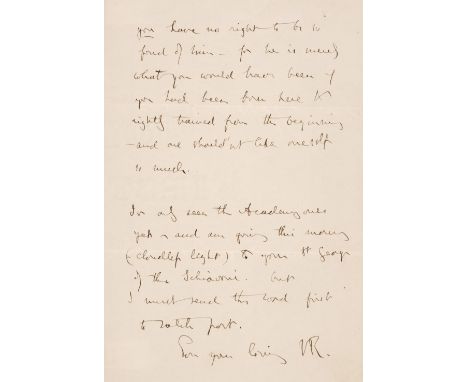 you have no right to be so
fond of him – for he is merely
what you would have been if
you had been born here &
rightly trained from the beginning
– and one should'nt like oneself
so much.
I've only seen the Academy ones
yet – and am going this morning
(cloudless light) to your St George
of the Schiavoni. but
I must send this word first
to catch post.
Ever your loving JR.